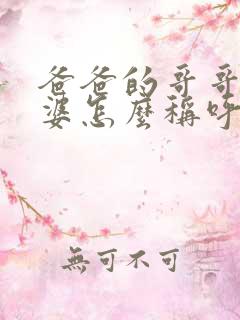 爸爸的哥哥
婆怎麼稱呼
無可不可